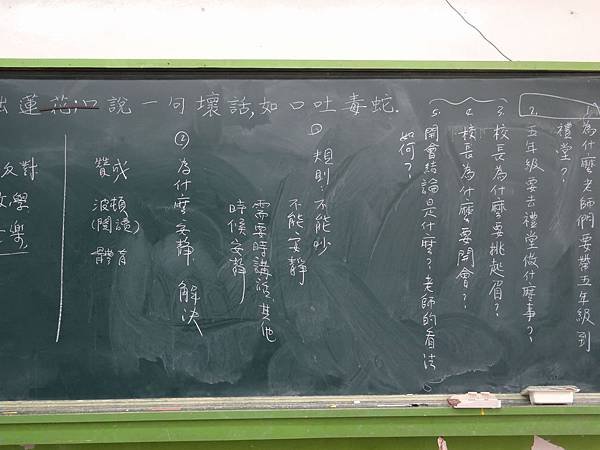 出蓮花口說一句壞話,如口吐毒蛇.
1.為什麼老師們要帶五年級到
禮堂?
2.五年級要去禮堂做什麼事?
3.校長為什麼要挑起眉?
4.校長為什麼要開會?
5.開會結論是什麼?老師的看法
如何?
①規則:不能吵
不能安靜
需要時講話,其他
時候安靜
②為什麼安靜 解決
贊成
波頓
(閱讀)
體育
反對
數學